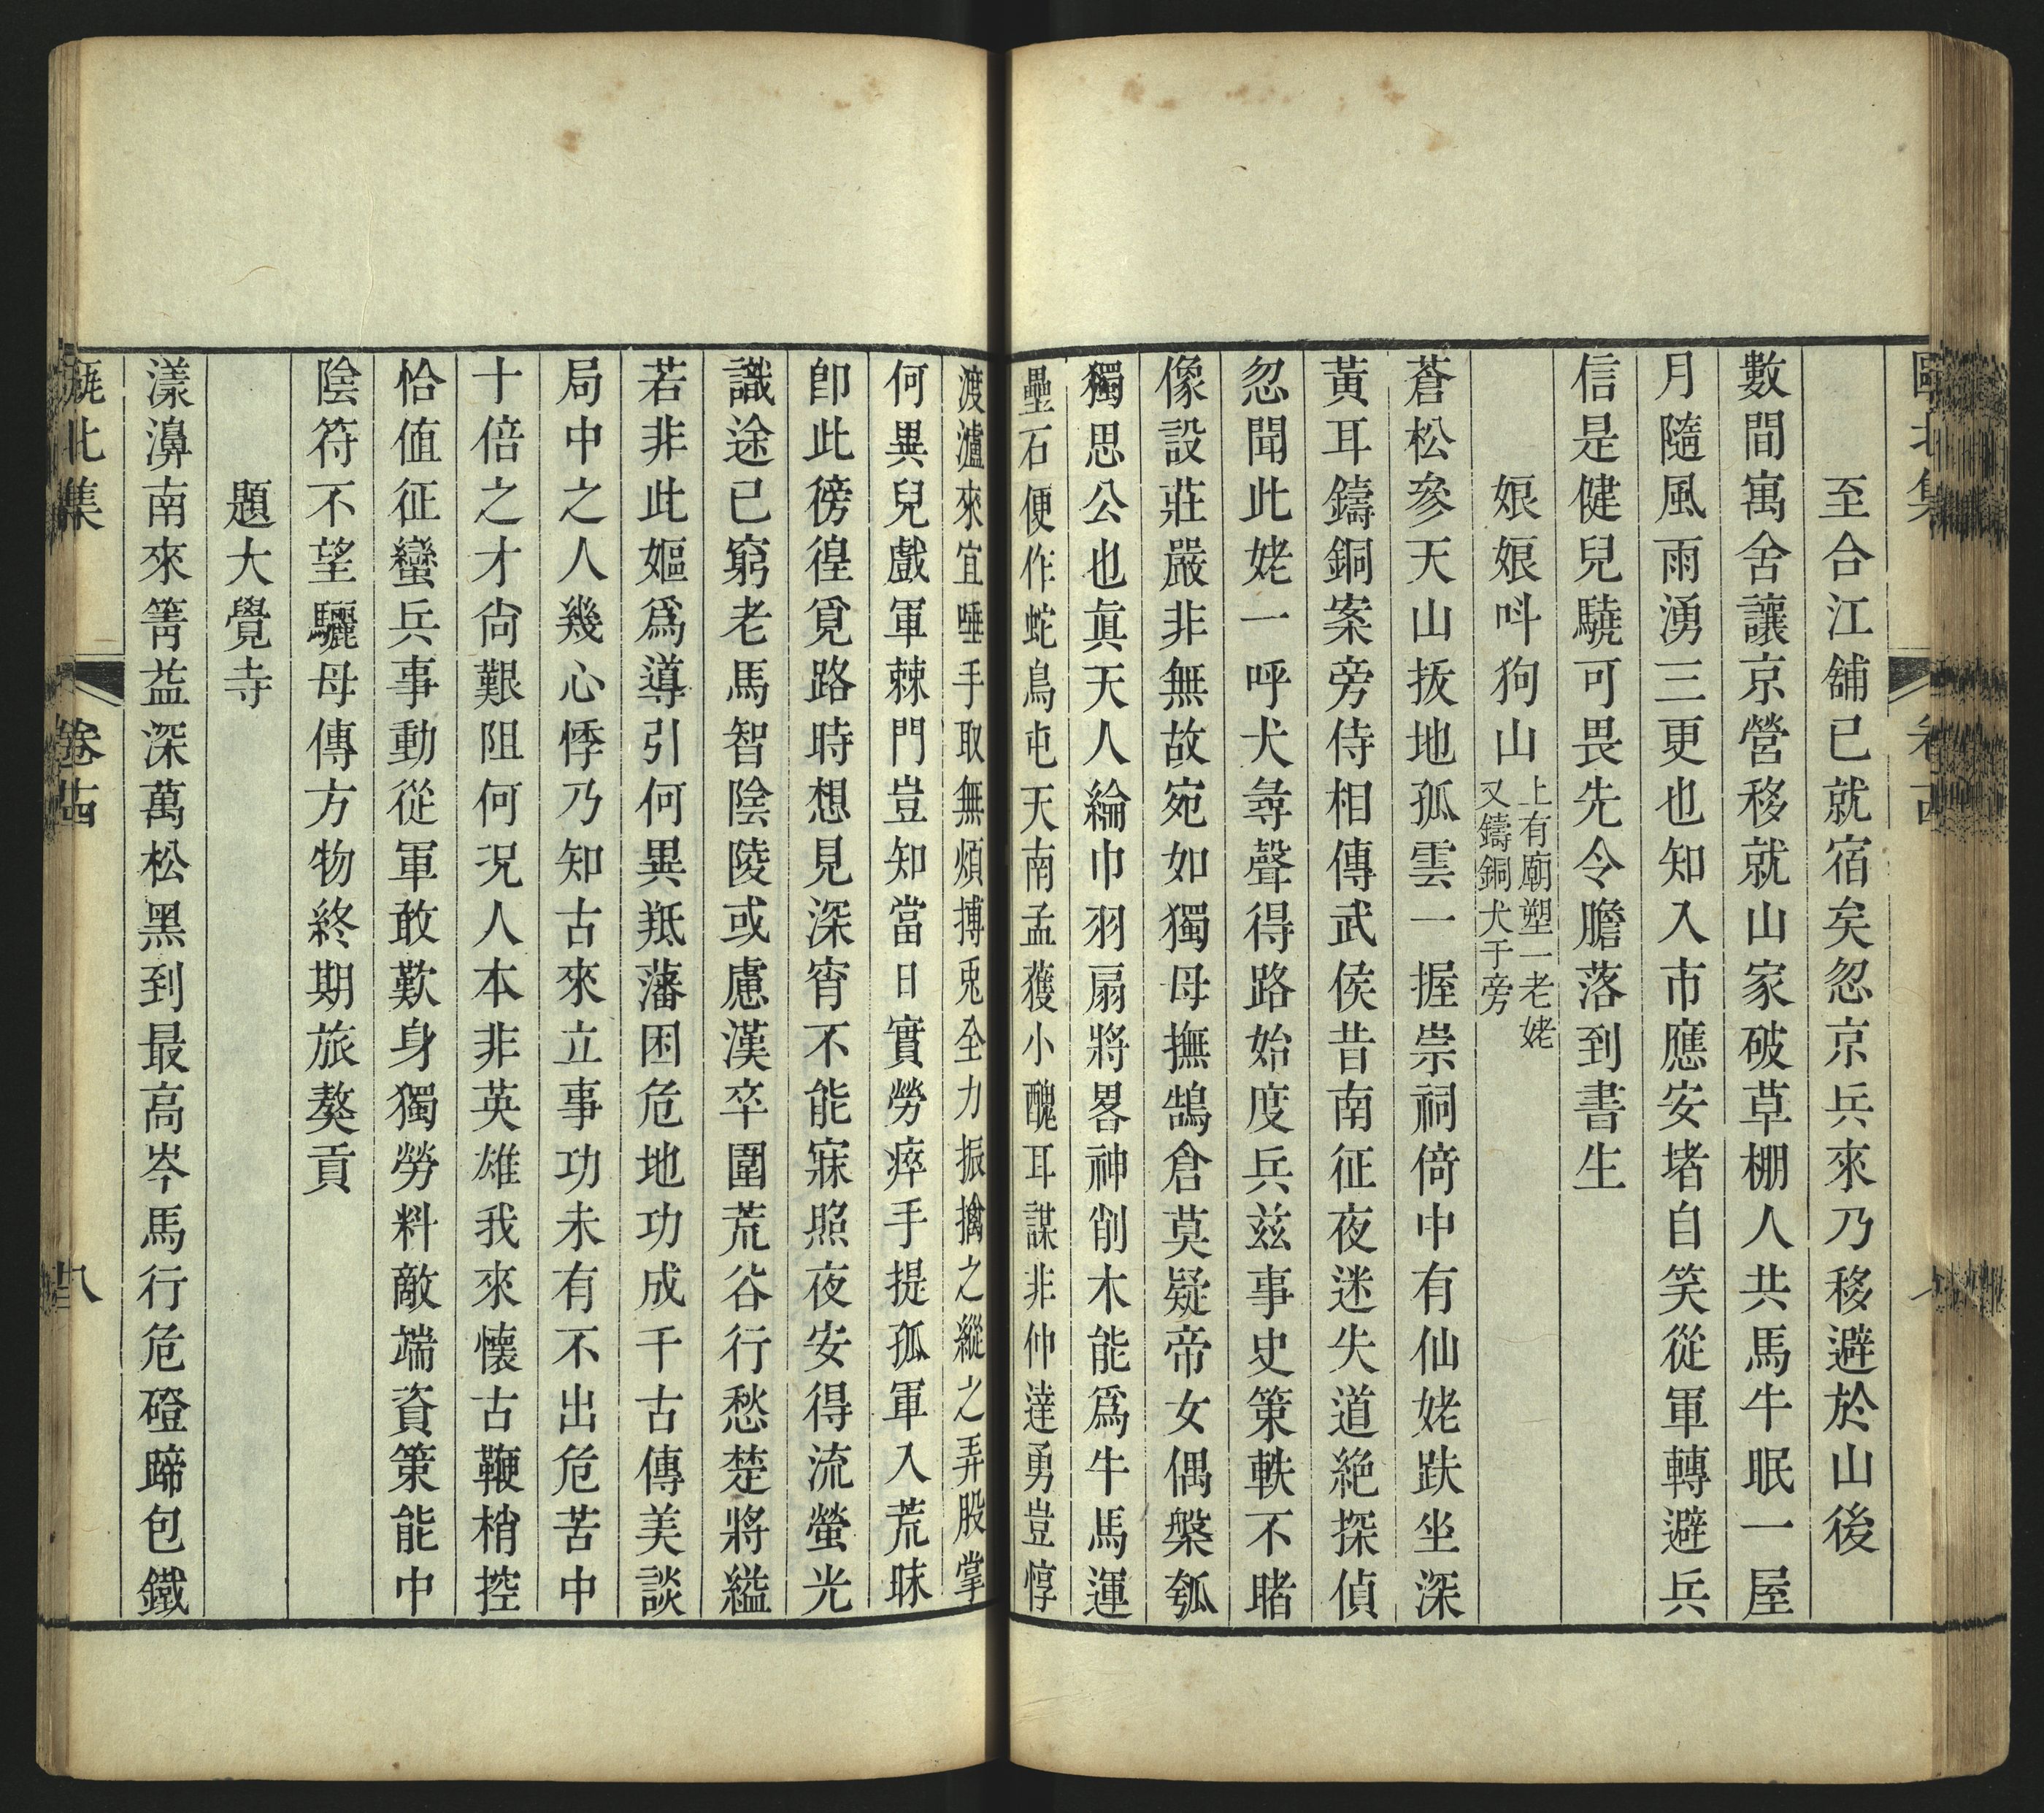 至合江舖已就宿矣忽京兵來乃移避於山後
數間寓舍讓京營移就山家破草棚人共馬牛眠一屋
月隨風雨湧三更也知入市應安堵自笑從軍轉避兵
信是健兒驍可畏先令膽落到書生
娘娘呌狗山上有廟塑一老姥
又鑄銅犬于旁
蒼松參天山拔地孤雲一握崇祠倚中有仙姥趺坐深
黃耳鑄銅案旁侍相傳武侯昔南征夜迷失道絶探偵
忽聞此姥一呼犬尋聲得路始度兵兹事史策軼不睹
像設莊嚴非無故宛如獨母撫鵠倉莫疑帝女偶槃瓠
獨思公也眞天人綸巾羽扇將畧神削木能爲牛馬運
壘石便作蛇鳥屯天南孟獲小醜耳謀非仲達勇豈惇
渡瀘來宜唾手取無煩搏兎全力振擒之縱之弄股掌
何異兒戲軍棘門豈知當日實勞瘁手提孤軍入荒昧
卽此徬徨覓路時想見深宵不能寐照夜安得流螢光
識途已窮老馬智陰陵或慮漢卒圍荒谷行愁楚將縊
若非此嫗爲導引何異羝藩困危地功成千古傳美談
局中之人幾心悸乃知古來立事功未有不出危苦中
十倍之才尙艱阻何況人本非英雄我來懷古鞭梢控
恰值征蠻兵事動從軍敢歎身獨勞料敵端資策能中
陰符不望驪母傳方物終期旅獒貢
題大覺寺
漾濞南來箐益深萬松黑到最高岑馬行危磴蹄包鐵
北集
卷廿四
八